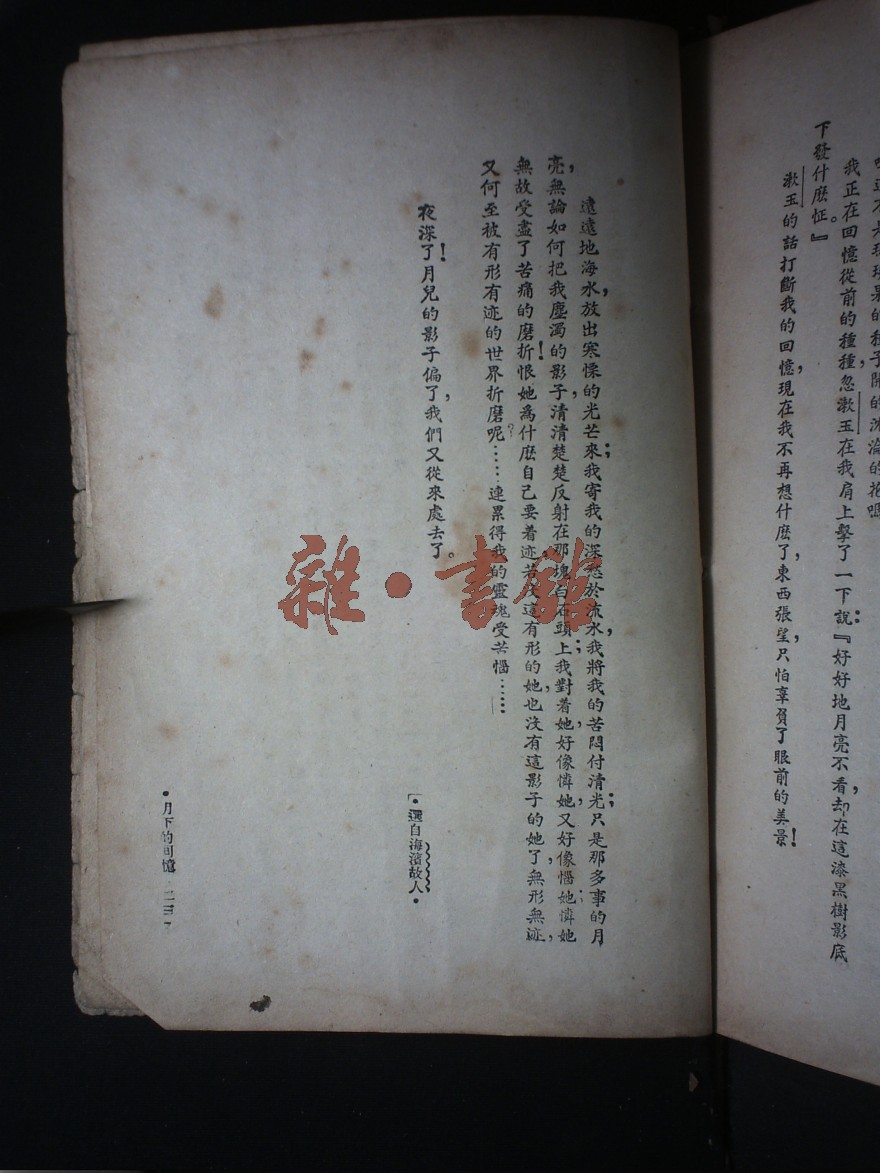 我正在回憶從前的種種，忽漱玉在我肩上擊了一下說：『好好地月亮不看，却在這漆黑樹影底
下發什麽怔。』
漱玉的話打斷我的回憶，現在我不再想什麽了，東西張望，只怕辜負了眼前的美景！
遠遠地海水，放出寒慄的光芒來；我寄我的深愁於流水，我將我的苦悶付清光；只是那多事的月
亮，無論如何把我塵濁的影子，清清楚楚反射在那塊白石頭上；我對着她，好像憐她，又好像惱她；憐她
無故受盡了苦痛的磨折！恨她爲什麽自己要着迹，若沒這有形的她，也沒有這影子的她了，無形無迹，
又何至被有形有迹的世界折磨呢？……連累得我的靈魂受苦惱……
夜深了！月兒的影子偏了，我們又從來處去了。
•選自海濱故人•
•月下的回憶
雜•書館